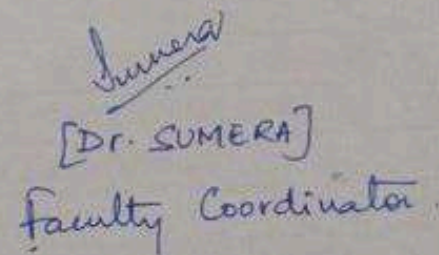 Sumera
[Dr. SUMERA]
Faculty Coordinator.